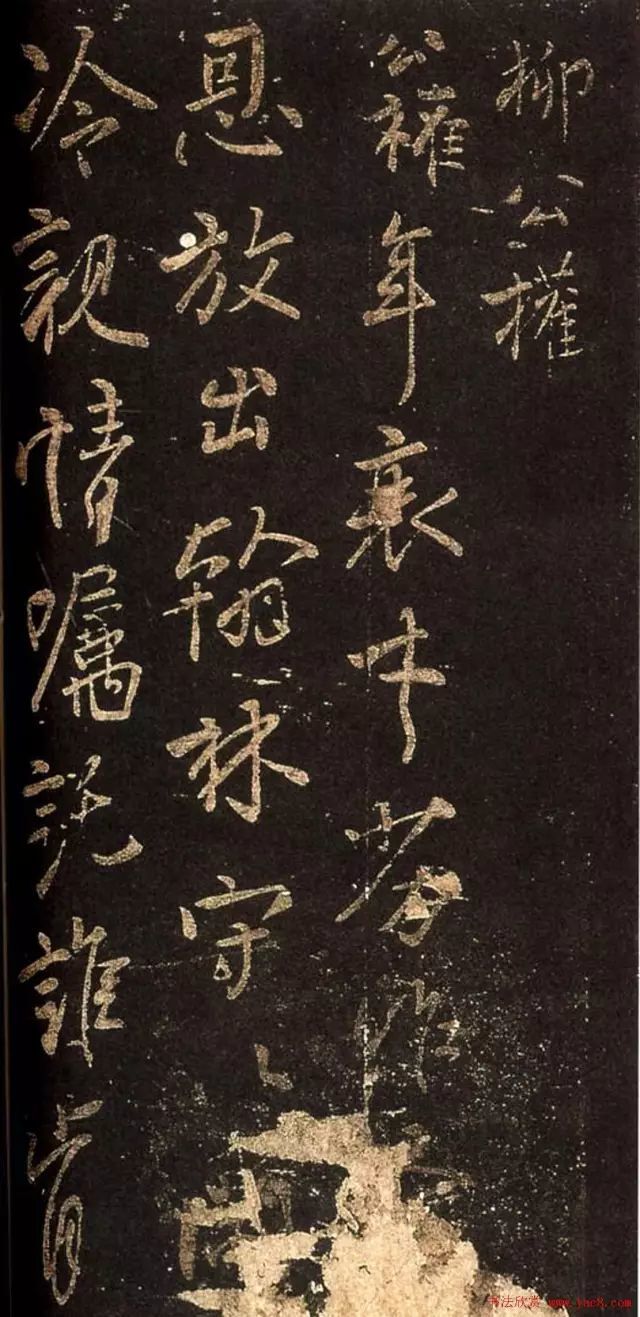 柳公權
公權年衰才劣昨
恩放出翰林守
冷親情囑託誰肯
书法欣赏 www.yac8.com